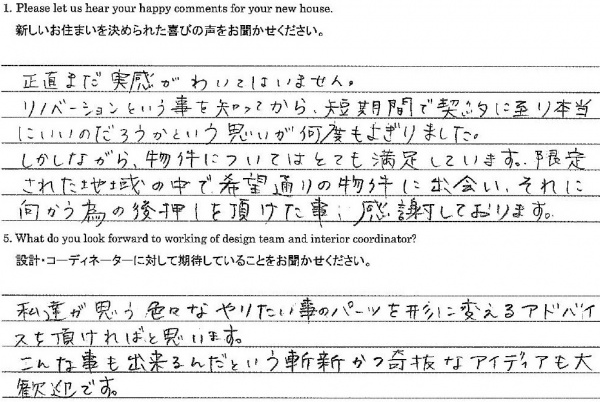 1. Please let us hear your happy comments for your new house.
新しいお住まいを決められた喜びの声をお聞かせください。
正直まだ実感がわいてはいません。
リノベーションという事を知ってから、短期間で契約に至り本当
にいいのだろうかという思いが何度もよぎりました。
しかしながら、物件についてはとても満足しています。限定
された地域の中で希望通りの物件に出会い、それに
向かう為の後押しを頂けた事、感謝しております。
5. What do you look forward to working of design team and interior coordinator?
設計・コーディネーターに対して期待していることをお聞かせください。
私達が思う色々なやりたい事のパーツを形に変えるアドバイ
スを頂ければと思います。
こんな事も出来るんだという斬新かつ奇抜なアイディアも大
歓迎です。